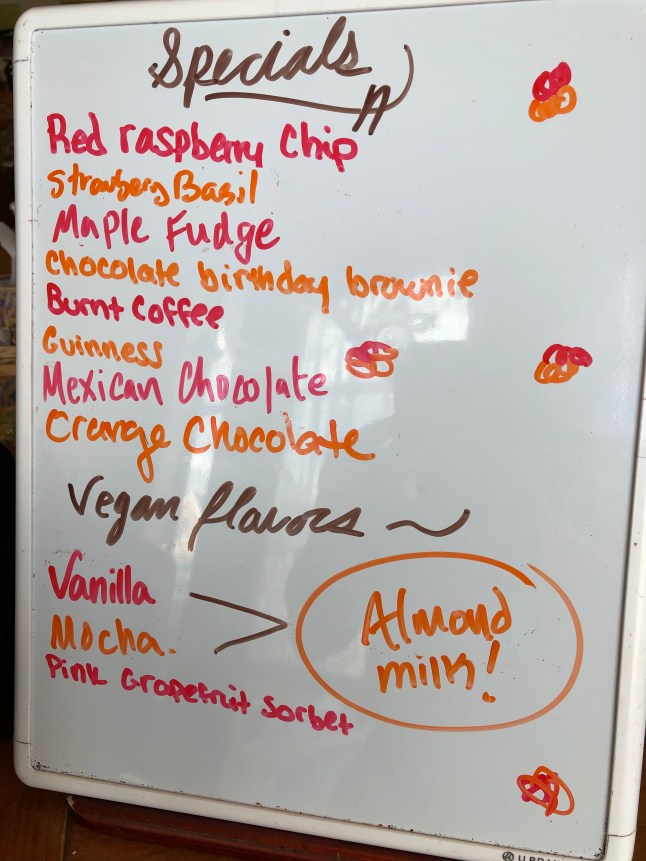 Specials
Red raspberry Chip
Strawberry Basil
Maple Fudge
Chocolate birthday brownie
Burnt Coffee
Guinness
Mexican Chocolate
Orange Chocolate
Vegan flavors ~
Vanilla
Mocha.
Pink Grapefruit Sorbet
Almond
milk!